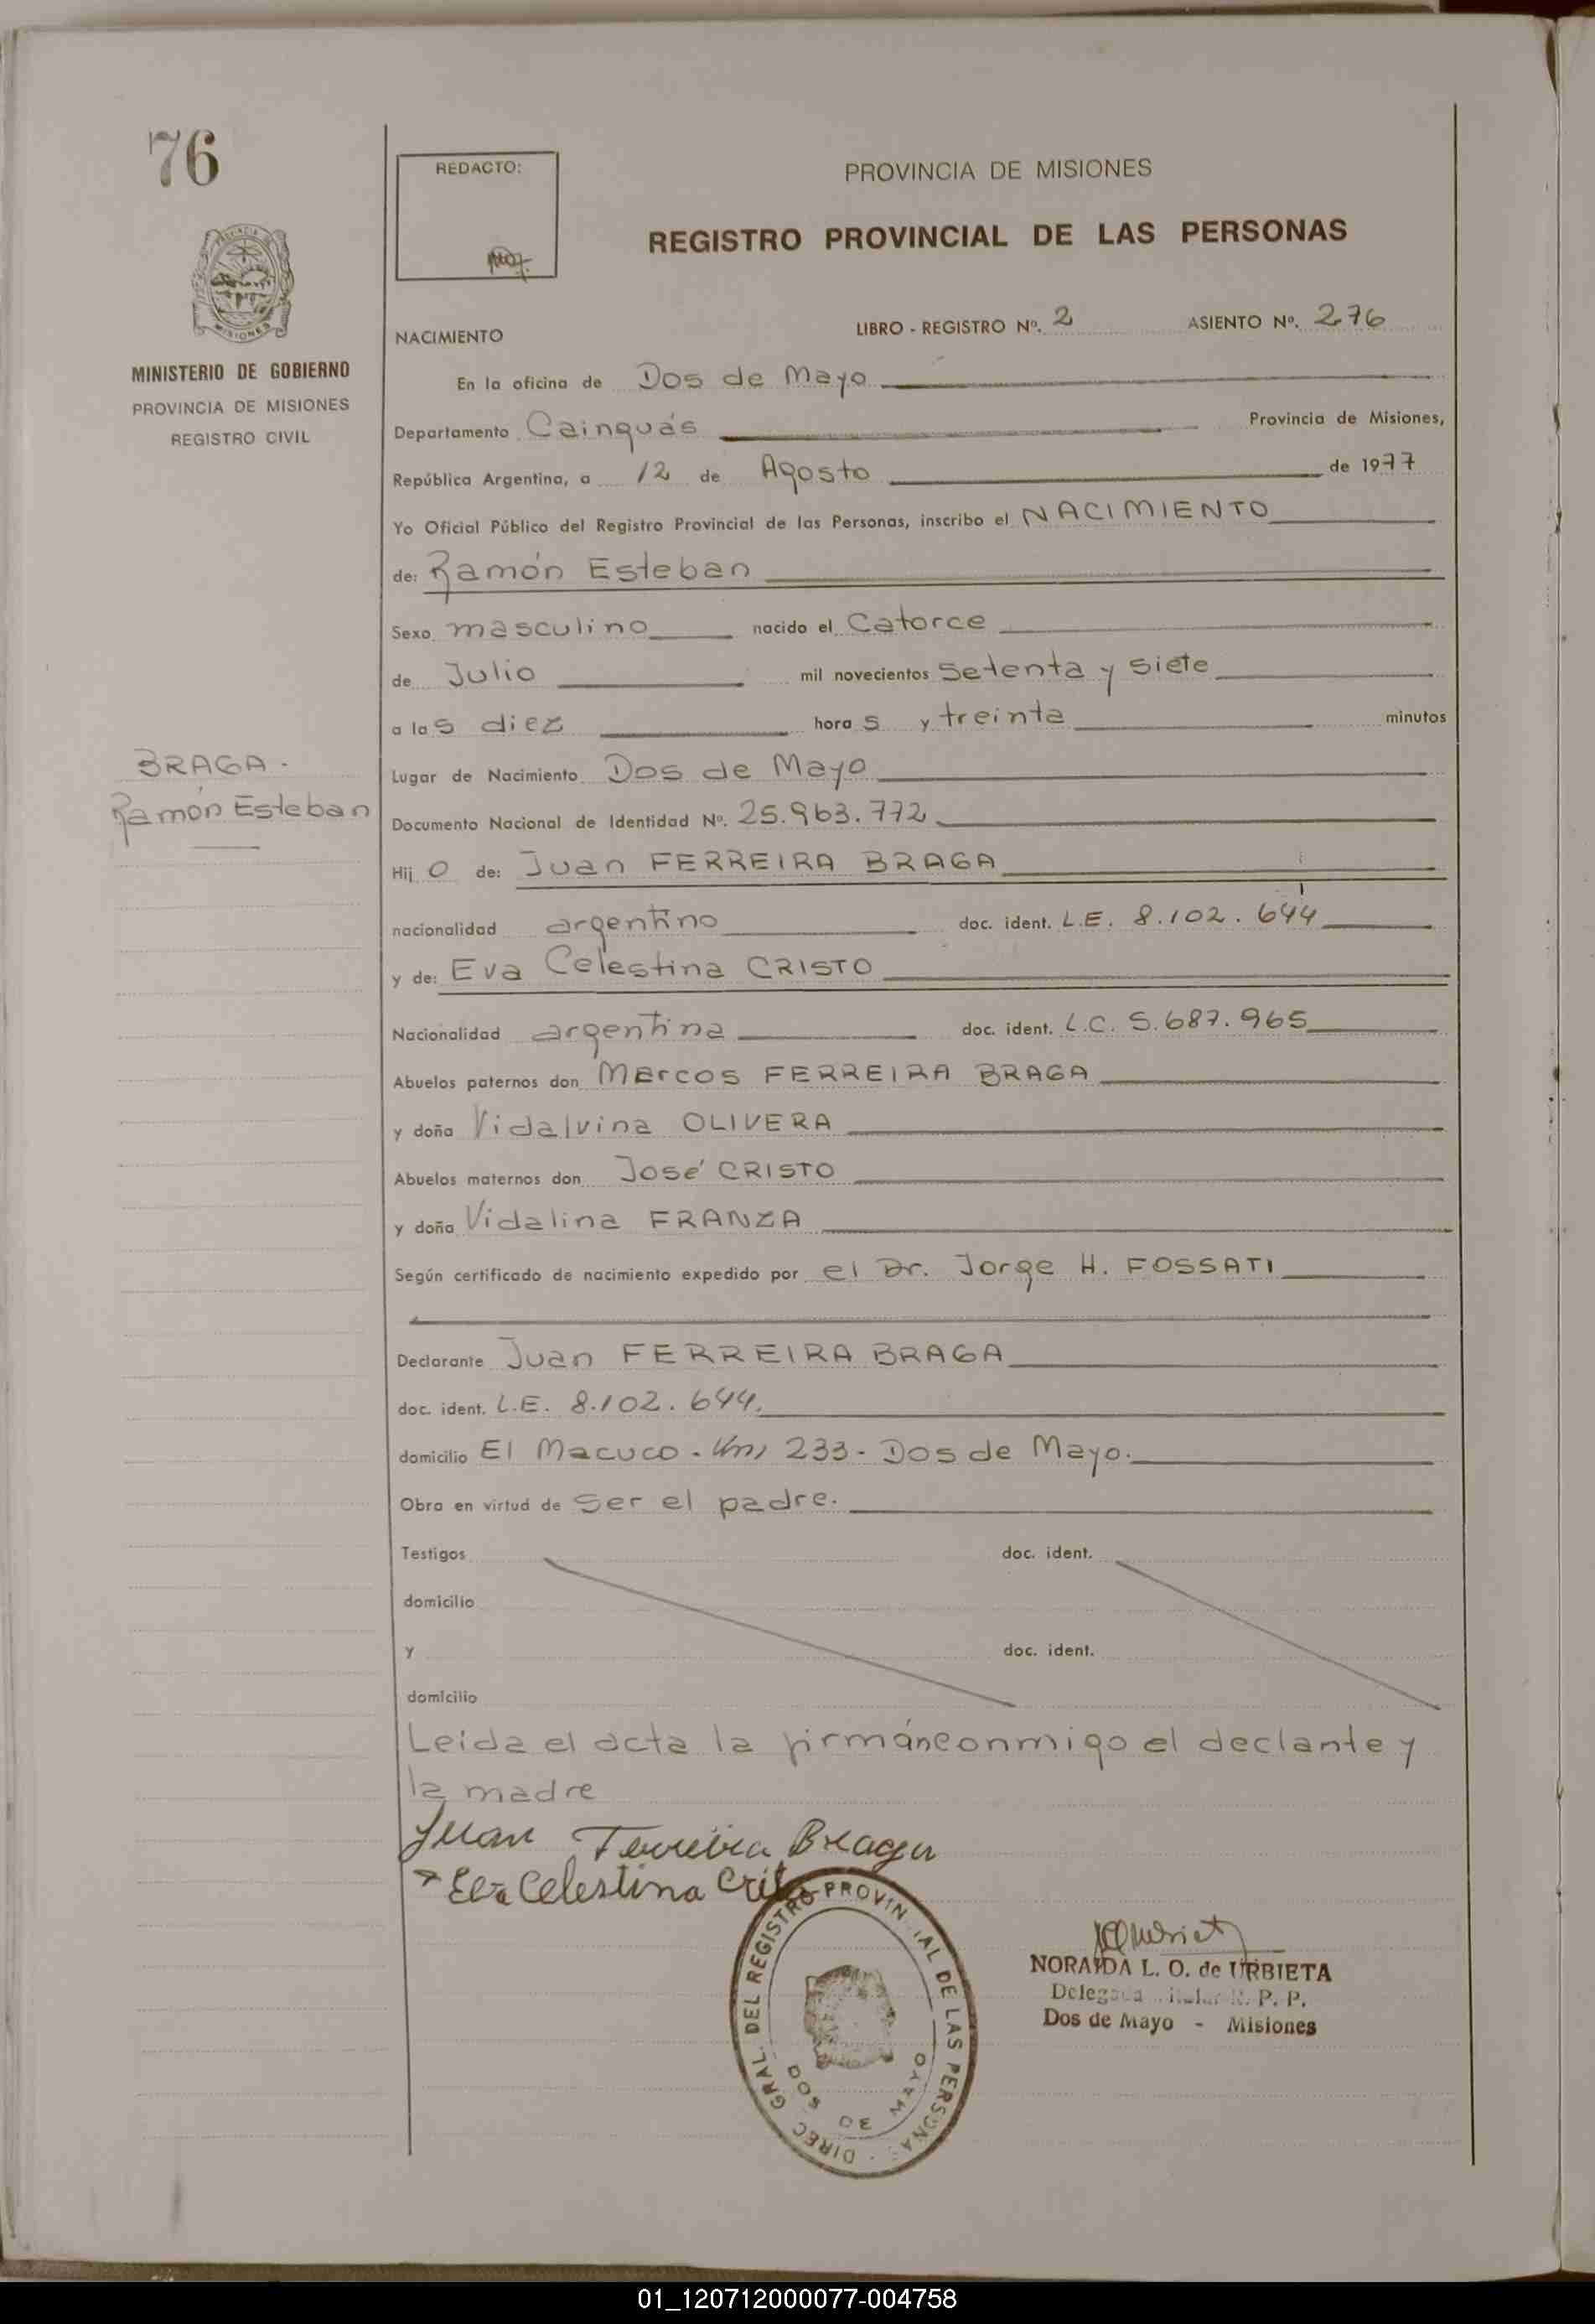 76
REDACTO:
PROVINCIA DE MISIONES
REGISTRO PROVINCIAL DE LAS PERSONAS
MISIONES
MINISTERIO DE GOBIERNO
PROVINCIA DE MISIONES
REGISTRO CIVIL
NACIMIENTO LIBRO - REGISTRO Nº. 2 ASIENTO Nº. 276
En la oficina de Dos de Mayo
Departamento Cainguás Provincia de Misiones,
República Argentina, a 12 de Agosto de 1977
Yo Oficial Público del Registro Provincial de las Personas, inscribo el NACIMIENTO
de: Ramón Esteban
Sexo masculino nacido el Catorce
de Julio mil novecientos setenta y siete
a las diez horas y treinta minutos
BRAGA.
Ramón Esteban
Lugar de Nacimiento Dos de Mayo
Documento Nacional de Identidad Nº. 25.963.772
Hijo de: Juan FERREIRA BRAGA
nacionalidad argentino doc. ident. L.E. 8.102.644
y de: Eva Celestina CRISTO
Nacionalidad argentina doc. ident. L.C. 5.687.965
Abuelos paternos don Marcos FERREIRA BRAGA
y doña Vidalvina OLIVERA
Abuelos maternos don José CRISTO
y doña Vidalina FRANZA
Según certificado de nacimiento expedido por el Dr. Jorge H. FOSSATI
Declarante Juan FERREIRA BRAGA
doc. ident. L.E. 8.102.644.
domicilio El Macuco - Km 233 - Dos de Mayo.
Obra en virtud de ser el padre.
Testigos doc. ident.
domicilio
y doc. ident.
domicilio
Leida el acta la firmán conmigo el declante y
la madre
Juan Ferreira Braga
Eva Celestina Crito
DIREC. GRAL. DEL REGISTRO PROVINCIAL DE LAS PERSONAS
DOS DE MAYO
NORAIDA L. O. de URBIETA
Delegada R. P. P.
Dos de Mayo - Misiones
01_120712000077-004758